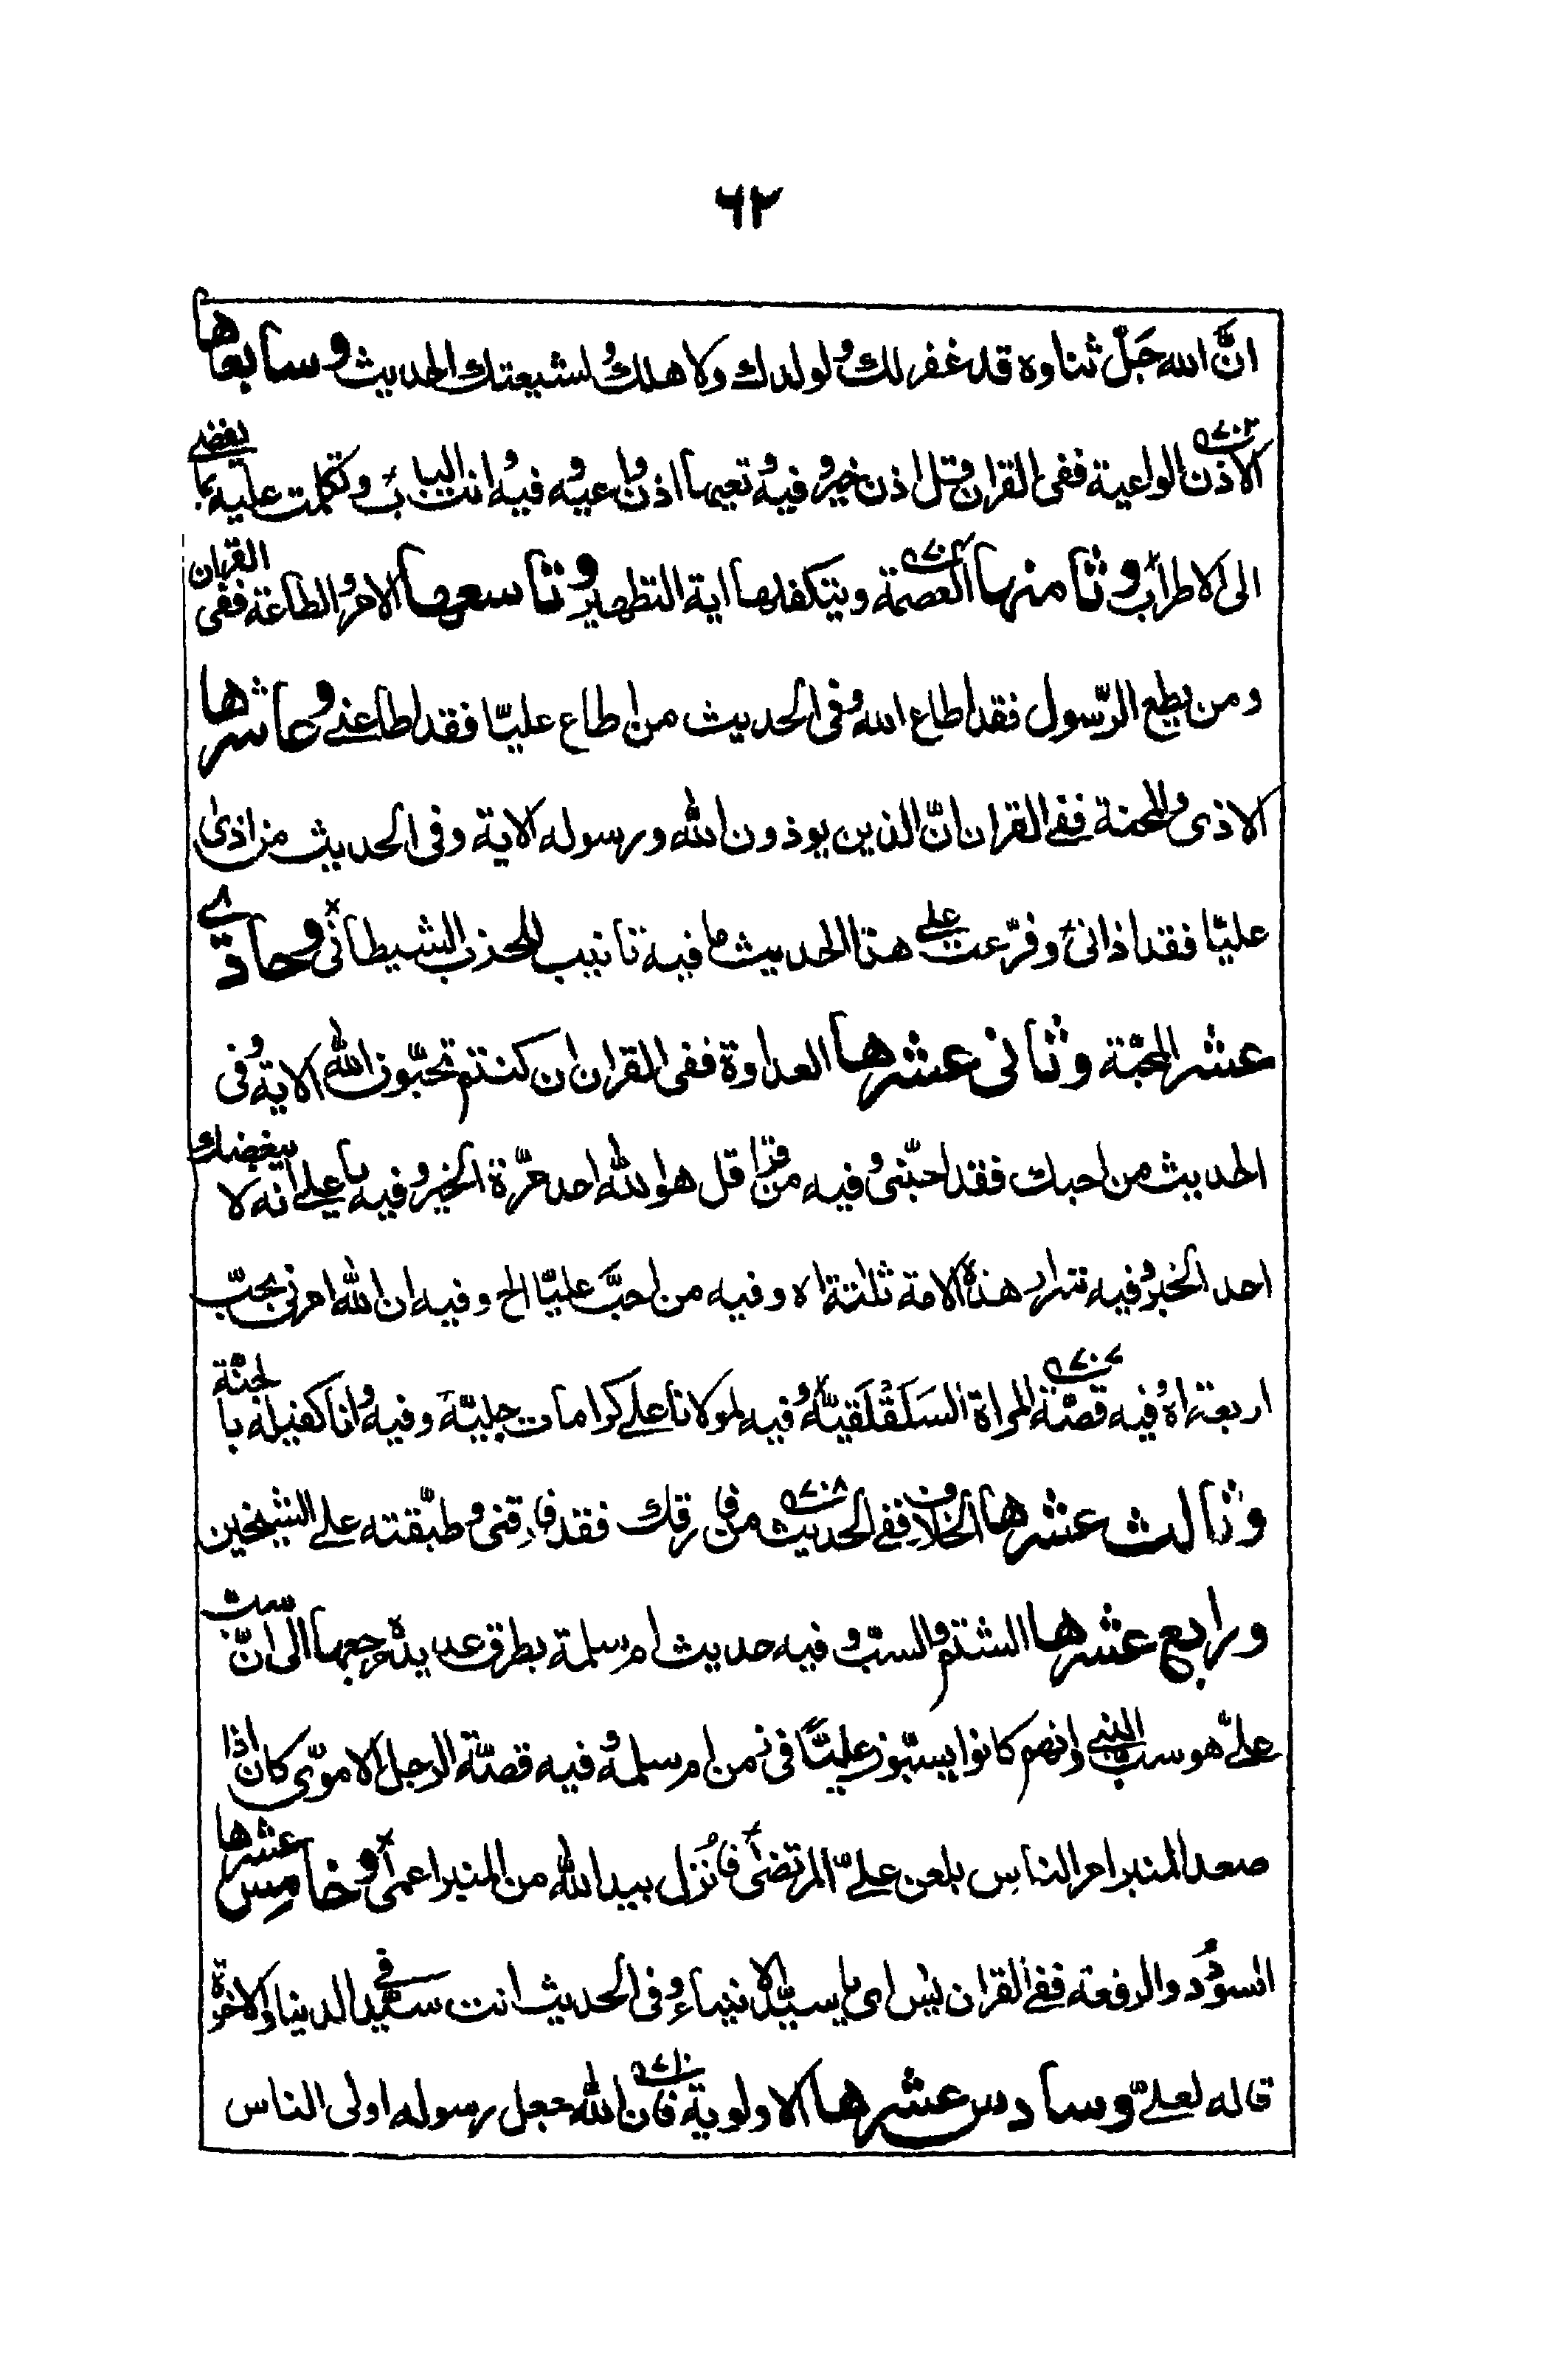 ٦٢
انّ الله جَلّ ثناوه قد غفر لك و لولدك ولاهلك و لشيعتك الحديث وسابعها
الاذن الواعية ففى القران قل اذن خير و فيه و تعيها اذن واعيه و فيه انت الباب وتكلمت عليه بما يفضى
الى الاطراب وثامنها العصمة ويتكفلها اية التطهير وتاسعها الامر و الطاعة ففى القران
ومن يطع الرّسول فقد اطاع الله و فى الحديث من اطاع عليّا فقد اطاعنے وعاشرها
الاذى والمحنة ففے القران انّ الذين يوذون الله ورسوله الاية وفى الحديث من اذى
عليّا فقد اذانى وفرّعت علے هذا الحديث ما فيه تانيب للحزب الشيطانى وحادے
عشر المحبّة وثانى عشرها العداوة ففى القران ان كنتم تحبّون الله الاية و فى
الحديث من احبك فقد احبّنى و فيه من قرا قل هو الله احد مرّة الخبر و فيه يا علے انه لا يبغضك
احد الخبر و فيه شرار هذه الامة ثلثة اه وفيه من احبَّ عليّا الخ وفيه ان الله امرنى بحبّ
اربعة اه و فيه قصّة المراة السَلَقْلَقيّة و فيه لمولانا علے كرامات جليّة وفيه و انا كفيله بالجنّة
وثالث عشرها الخلاف ففے الحديث من فارقك فقد فارقنى و طبّقته علے الشيخين
ورابع عشرها الشتم والسبّ و فيه حديث ام سلمة بطرق عديده مرجعها الى انّ سبّ
علےّ هو سب النبى وانهم كانوا يسبّون عليّا فى زمن ام سلمه و فيه قصّة الرجل الامویّ كان اذا
صعد المنبر امر الناس بلعن علےّ المرتضى فانزل بيد الله من المنبر اعمى وخامس عشرها
السؤدد والرفعة ففے القران يٰس اى يا سيّد الانبياء و فى الحديث انت سيّد فے الدنيا والاخرة
قاله لعلےّ وسادس عشرها الاولوية فان الله جعل رسوله اولى الناس